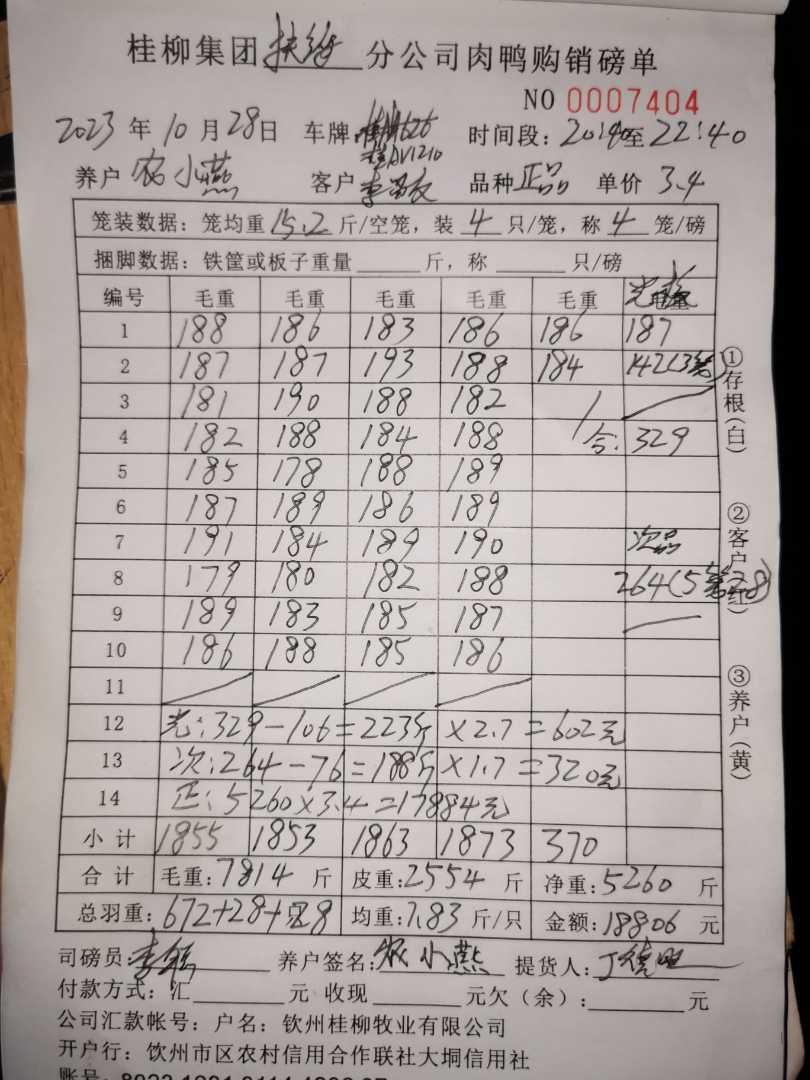 桂柳集团扶绥分公司肉鸭购销磅单
NO 0007404
2023年10月28日 车牌: 时间段:20:40至22:40
养户 农小燕 客户 品种 正品 单价 3.4
笼装数据:笼均重15.2斤/空笼,装4只/笼,称4笼/磅
捆脚数据:铁筐或板子重量 斤,称 只/磅
编号 毛重 毛重 毛重 毛重 毛重
1 188 186 183 186 186 187
2 187 187 193 188 184 142(3笼)
3 181 190 188 182
4 182 188 184 188 合:329
5 185 178 188 189
6 187 189 186 189
7 191 184 189 190 次品
8 179 180 182 188 264(5笼28)
9 189 183 185 187
10 186 188 185 186
11
12 光:329-106=223斤×2.7=602元
13 次:264-76=188斤×1.7=320元
14 正:5260×3.4=17884元
小计 1855 1853 1863 1873 370
合计 毛重:7814斤 皮重:2554斤 净重:5260斤
总羽重:672+28+28 均重:7.83斤/只 金额:18806元
司磅员: 养户签名:农小燕 提货人:
付款方式:汇 元 收现 元欠(余): 元
公司汇款帐号:户名:钦州桂柳牧业有限公司
开户行:钦州市区农村信用合作联社大垌信用社
账号:
①存根(白)
②客户(红)
③养户(黄)